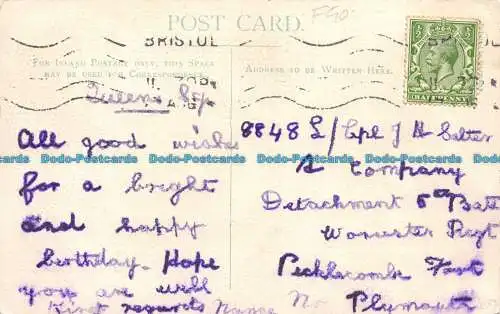 POST CARD.
F40.
BRISTOL
FOR INLAND POSTAGE ONLY, THIS SPACE
MAY BE USED FOR CORRESPONDENCE.
ADDRESS TO BE WRITTEN HERE.
HALFPENNY
Queens Sq
All good wishes
for a bright
and happy
birthday. Hope
you are well
Kind regards
8848 L/Cpl J H Salter
A Company
Detachment 5th Batt
Worcester Regt
Fort
Plymouth
Dodo-Postcards Dodo-Postcards Dodo-Postcards Dodo-Postcards